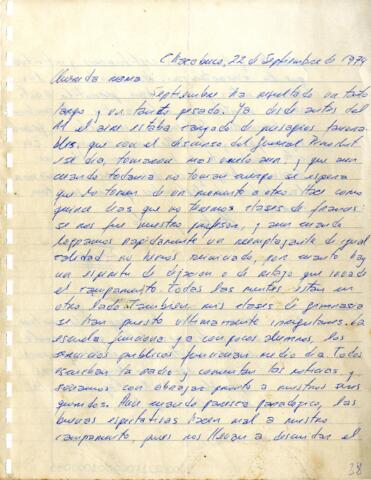 Chacabuco, 22 de Septiembre de 1974
Querida mamá
Septiembre ha resultado un tanto
largo y un tanto pesado. Ya desde antes del
11 el aire estaba cargado de presagios favora-
bles, que con el discurso del General Pinochet
ese día, tomaron más vuelo aún, y que aun
cuando todavía no toman cuerpo se espera
que lo tomen de un momento a otro. Hace como
quince días que no tenemos clases de francés:
se nos fue nuestro profesor, y aun cuando
logramos rápidamente un reemplazante de igual
calidad no hemos reiniciado, por cuanto hay
un espíritu de dejación o de relajo que invade
el campamento. Todas las mentes están en
otro lado. También mis clases de gimnasia
se han puesto últimamente irregulares. La
escuela funciona ya con pocos alumnos, los
servicios públicos funcionan medio día. Todos
escuchan la radio y comentan las noticias y
soñamos con abrazar pronto a nuestros seres
queridos. Aun cuando parezca paradójico, las
buenas espectativas hacen mal a nuestro
campamento, pues nos llevan a descuidar el
38